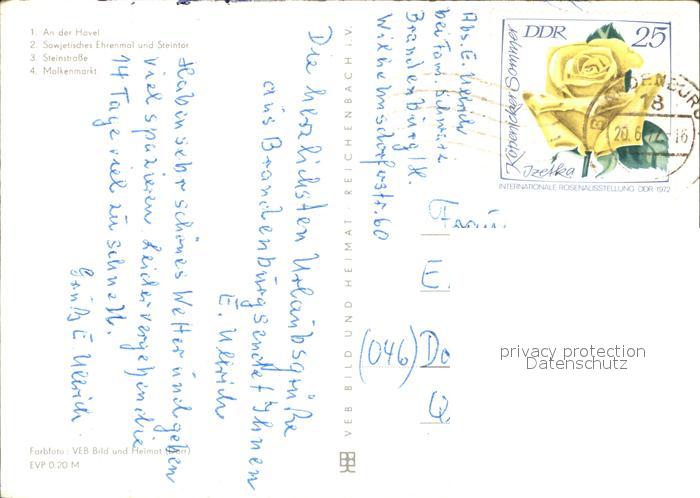 1. An der Havel
2. Sowjetisches Ehrenmal und Steintor
3. Steinstraße
4. Molkenmarkt
Die herzlichsten Urlaubsgrüße
aus Brandenburg sendet Ihnen
E. Ullrich
Habin sehr schönes Wetter und gehen
viel spazieren. Leider vergehen die
14 Tage viel zu schnell.
Gruß E. Ullrich.
Farbfoto: VEB Bild und Heimat
EVP 0.20 M
VEB BILD UND HEIMAT · REICHENBACH i. V.
Abs. E. Ullrich
bei Fam.
Brandenburg/H.
Wilhelmsdorferstr. 60
DDR 25
Köpenicker Sommer
Izetka
INTERNATIONALE ROSENAUSSTELLUNG DDR 1972
BRANDENBURG
18
20.6.72-16
Frau
E.
(046) Do
Q
privacy protection
Datenschutz